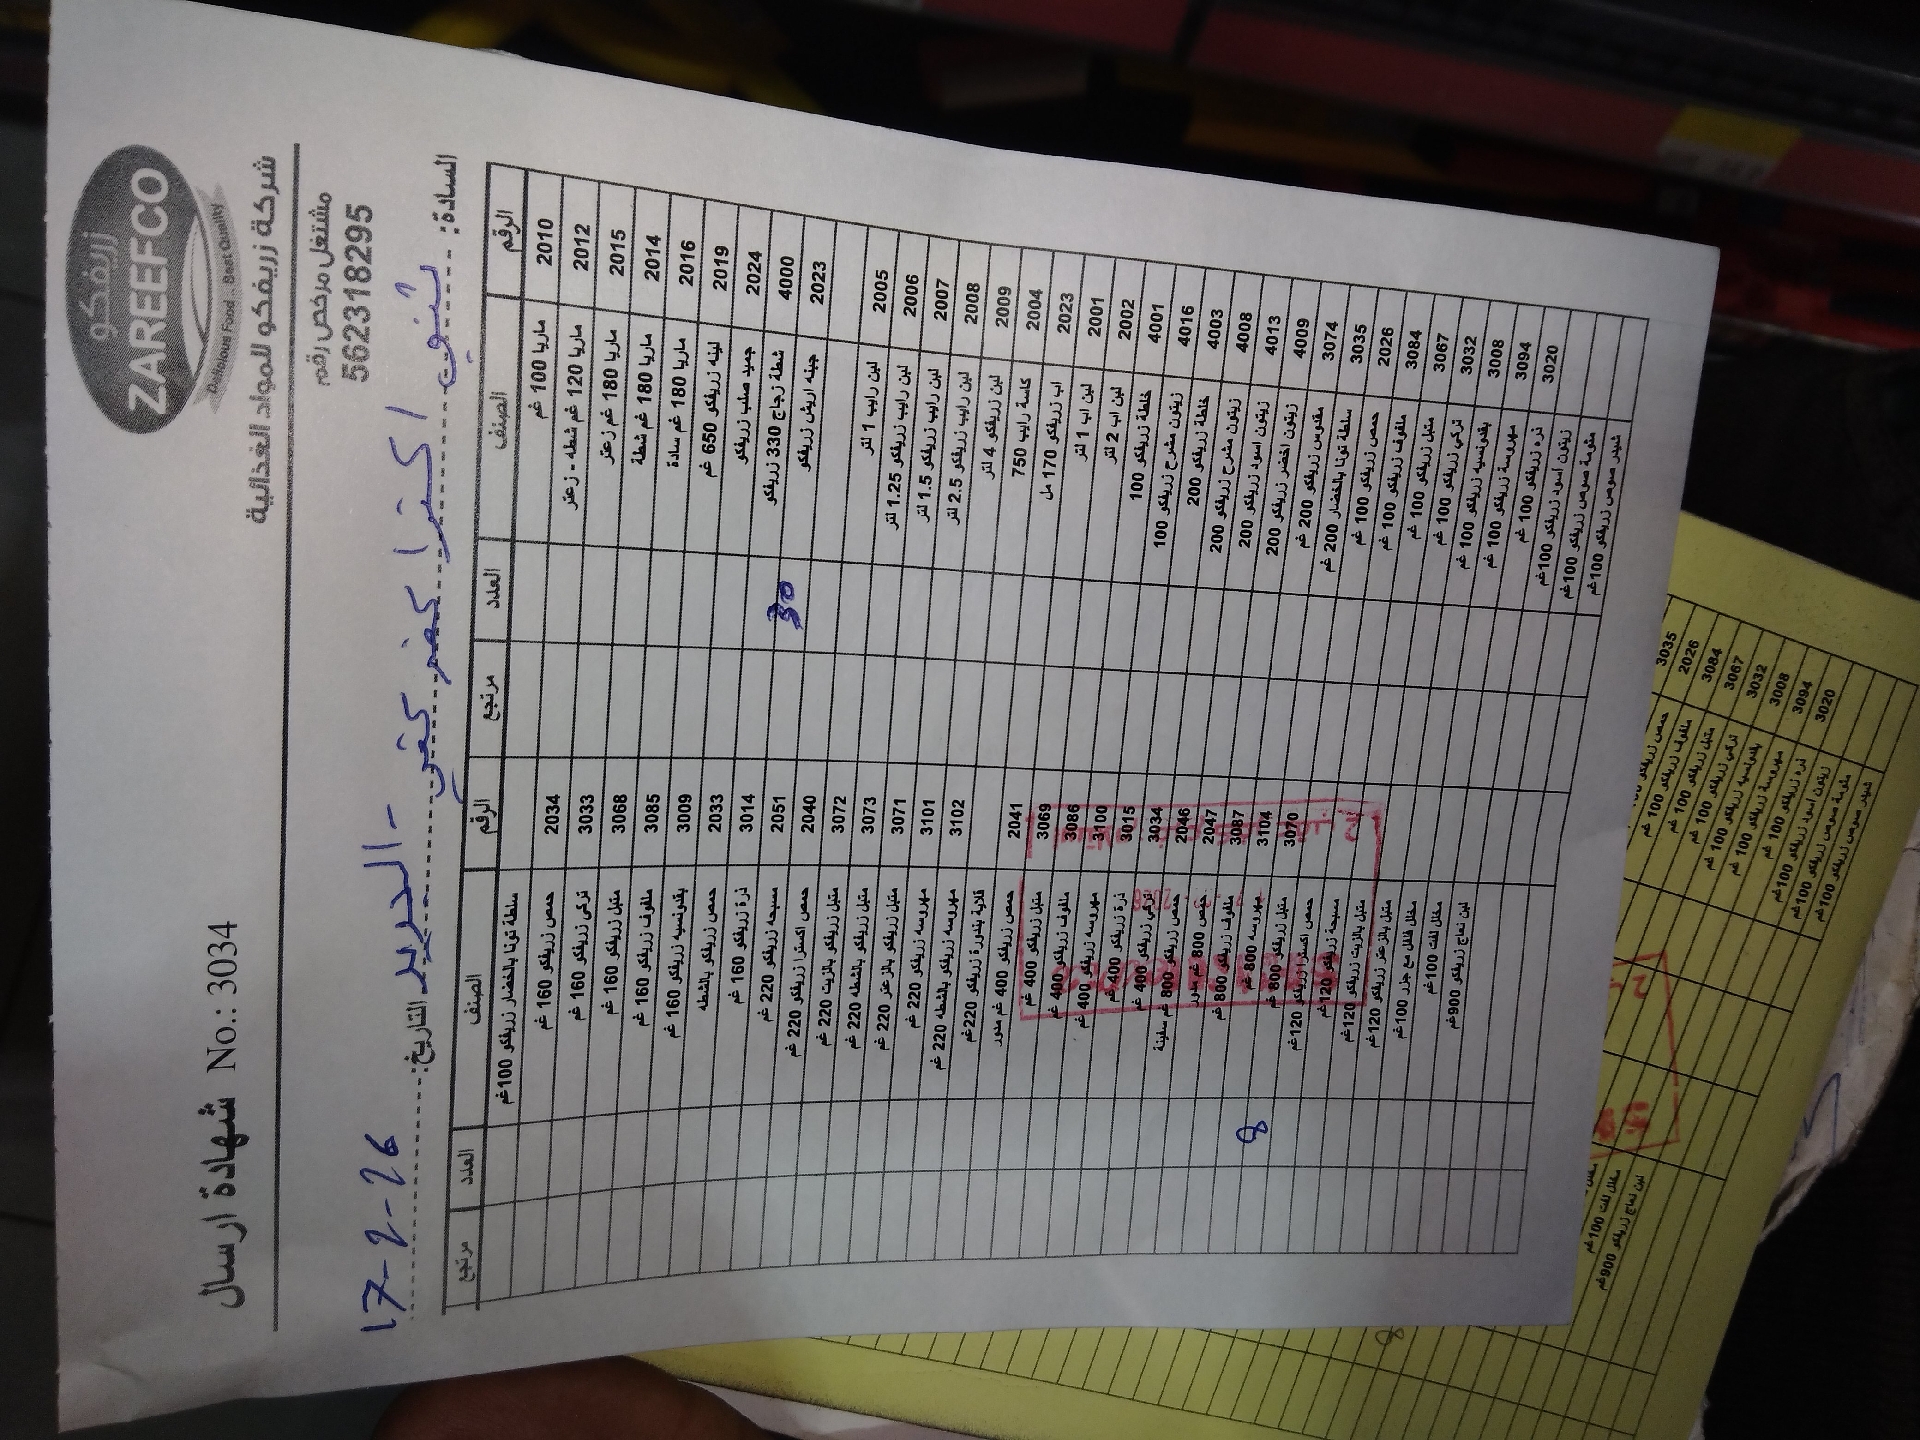 زريفكو
ZAREEFCO
Delicious Food . Best Quality
شركة زريفكو للمواد الغذائية
شهادة ارسال No.: 3034
مشتغل مرخص رقم
562318295
السادة:
اكسترا
التاريخ: 17-2-26
الرقم الصنف العدد مرتجع الرقم الصنف العدد مرتجع
2010 ماريا 100 غم سلطة تونا بالخضار زريفكو 100غم
2012 ماريا 120 غم شطه - زعتر 2034 حمص زريفكو 160 غم
2015 ماريا 180 غم زعتر 3033 تركي زريفكو 160 غم
2014 ماريا 180 غم شطة 3068 متبل زريفكو 160 غم
2016 ماريا 180 غم سادة 3085 ملفوف زريفكو 160 غم
2019 لبنه زريفكو 650 غم 3009 بقدونسيه زريفكو 160 غم
2024 جميد صلب زريفكو 2033 حمص زريفكو بالشطه
4000 شطة زجاج 330 زريفكو 30 3014 ذرة زريفكو 160 غم
2023 جبنه اريش زريفكو 2051 مسبحه زريفكو 220 غم
2040 حمص اكسترا زريفكو 220 غم
2005 لبن رايب 1 لتر 3072 متبل زريفكو بالزيت 220 غم
2006 لبن رايب زريفكو 1.25 لتر 3073 متبل زريفكو بالشطه 220 غم
2007 لبن رايب زريفكو 1.5 لتر 3071 متبل زريفكو بالزعتر 220 غم
2008 لبن رايب زريفكو 2.5 لتر 3101 مهروسه زريفكو 220 غم
2009 لبن زريفكو 4 لتر 3102 مهروسه زريفكو بالشطه 220 غم
2004 كاسة رايب 750 قلاية بندورة زريفكو 220غم
2023 اب زريفكو 170 مل 2041 حمص زريفكو 400 غم مدور
2001 لبن اب 1 لتر 3069 متبل زريفكو 400 غم
2002 لبن اب 2 لتر 3086 ملفوف زريفكو 400 غم
4001 خلطة زريفكو 100 3100 مهروسه زريفكو 400 غم
4016 زيتون مشرح زريفكو 100 3015 ذرة زريفكو 400 غم
4003 خلطة زريفكو 200 3034 تركي زريفكو 400 غم
4008 زيتون مشرح زريفكو 200 2046 حمص زريفكو 800 غم سفينة
4013 زيتون اسود زريفكو 200 2047 حمص 800 غم مدور
4009 زيتون اخضر زريفكو 200 3087 ملفوف زريفكو 800 غم
3074 مقدوس زريفكو 200 غم 3104 مهروسه 800 غم 8
3035 سلطة تونا بالخضار 200 غم 3070 متبل زريفكو 800 غم
2026 حمص زريفكو 100 غم حمص اكسترا زريفكو 120غم
3084 ملفوف زريفكو 100 غم مسبحة زريفكو 120غم
3067 متبل زريفكو 100 غم متبل بالزيت زريفكو 120غم
3032 تركي زريفكو 100 غم متبل بالزعتر زريفكو 120غم
3008 بقدونسيه زريفكو 100 غم مخلل فلفل مع جزر 100غم
3094 مهروسة زريفكو 100 غم مخلل لفت 100غم
3020 ذره زريفكو 100 غم لبن نعاج زريفكو 900غم
زيتون اسود زريفكو 100غم
مثومة صوص زريفكو 100غم
شيدر صوص زريفكو 100غم
3035
2026 حمص زريفكو 100 غم
3084 ملفوف زريفكو 100 غم
3067 متبل زريفكو 100 غم
3032 تركي زريفكو 100 غم
3008 بقدونسيه زريفكو 100 غم
3094 مهروسة زريفكو 100 غم
3020 ذره زريفكو 100 غم
زيتون اسود زريفكو 100غم
مثومة صوص زريفكو 100غم
شيدر صوص زريفكو 100غم
مخلل لفت 100غم
لبن نعاج زريفكو 900غم
8